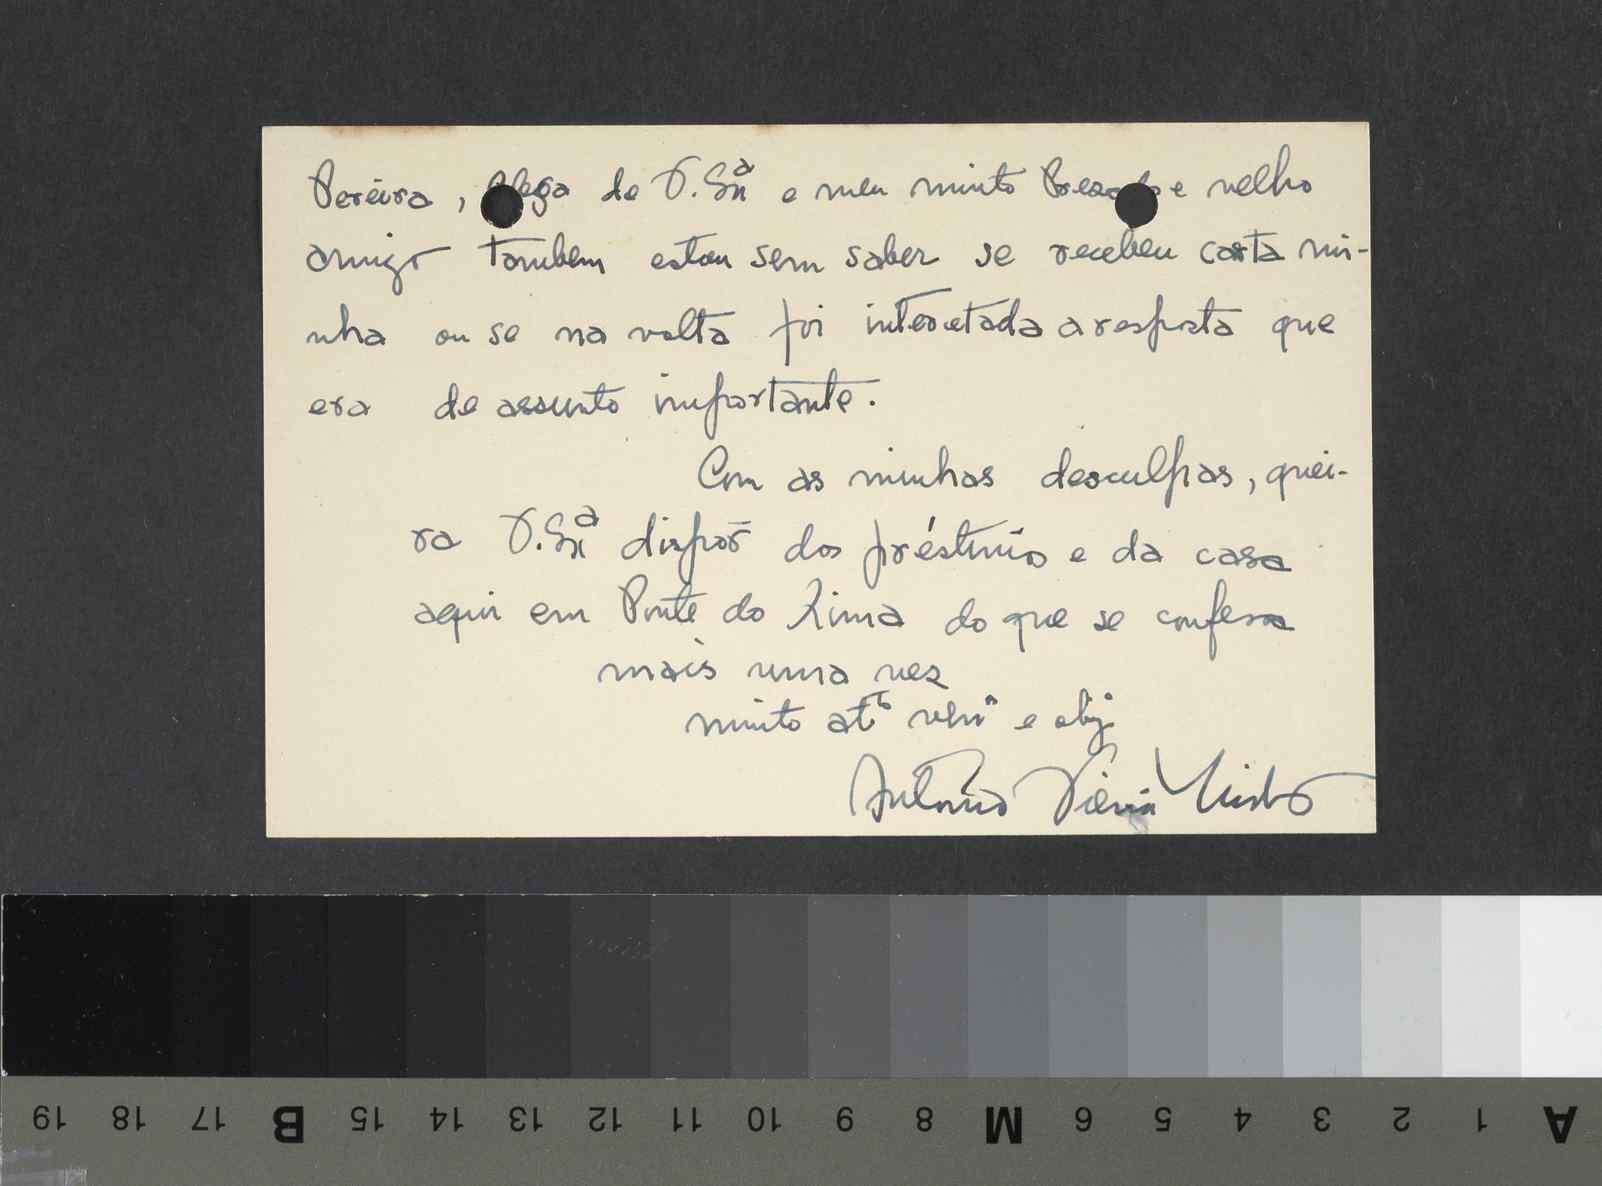 Pereira, colega de V. Sriª e meu muito Prezado e velho
amigo tambem estou sem saber se recebeu carta mi-
nha ou se na volta foi intercetada a resposta que
era de assunto importante.
Com as minhas desculpas, quei-
ra V. Sriª dispôr dos préstimos e da casa
aqui em Ponte do Lima do que se confessa
mais uma vez
muito atº e obgº
Antonio Vieira
19 18 17 B 15 14 13 12 11 10 9 8 M 6 5 4 3 2 1 A